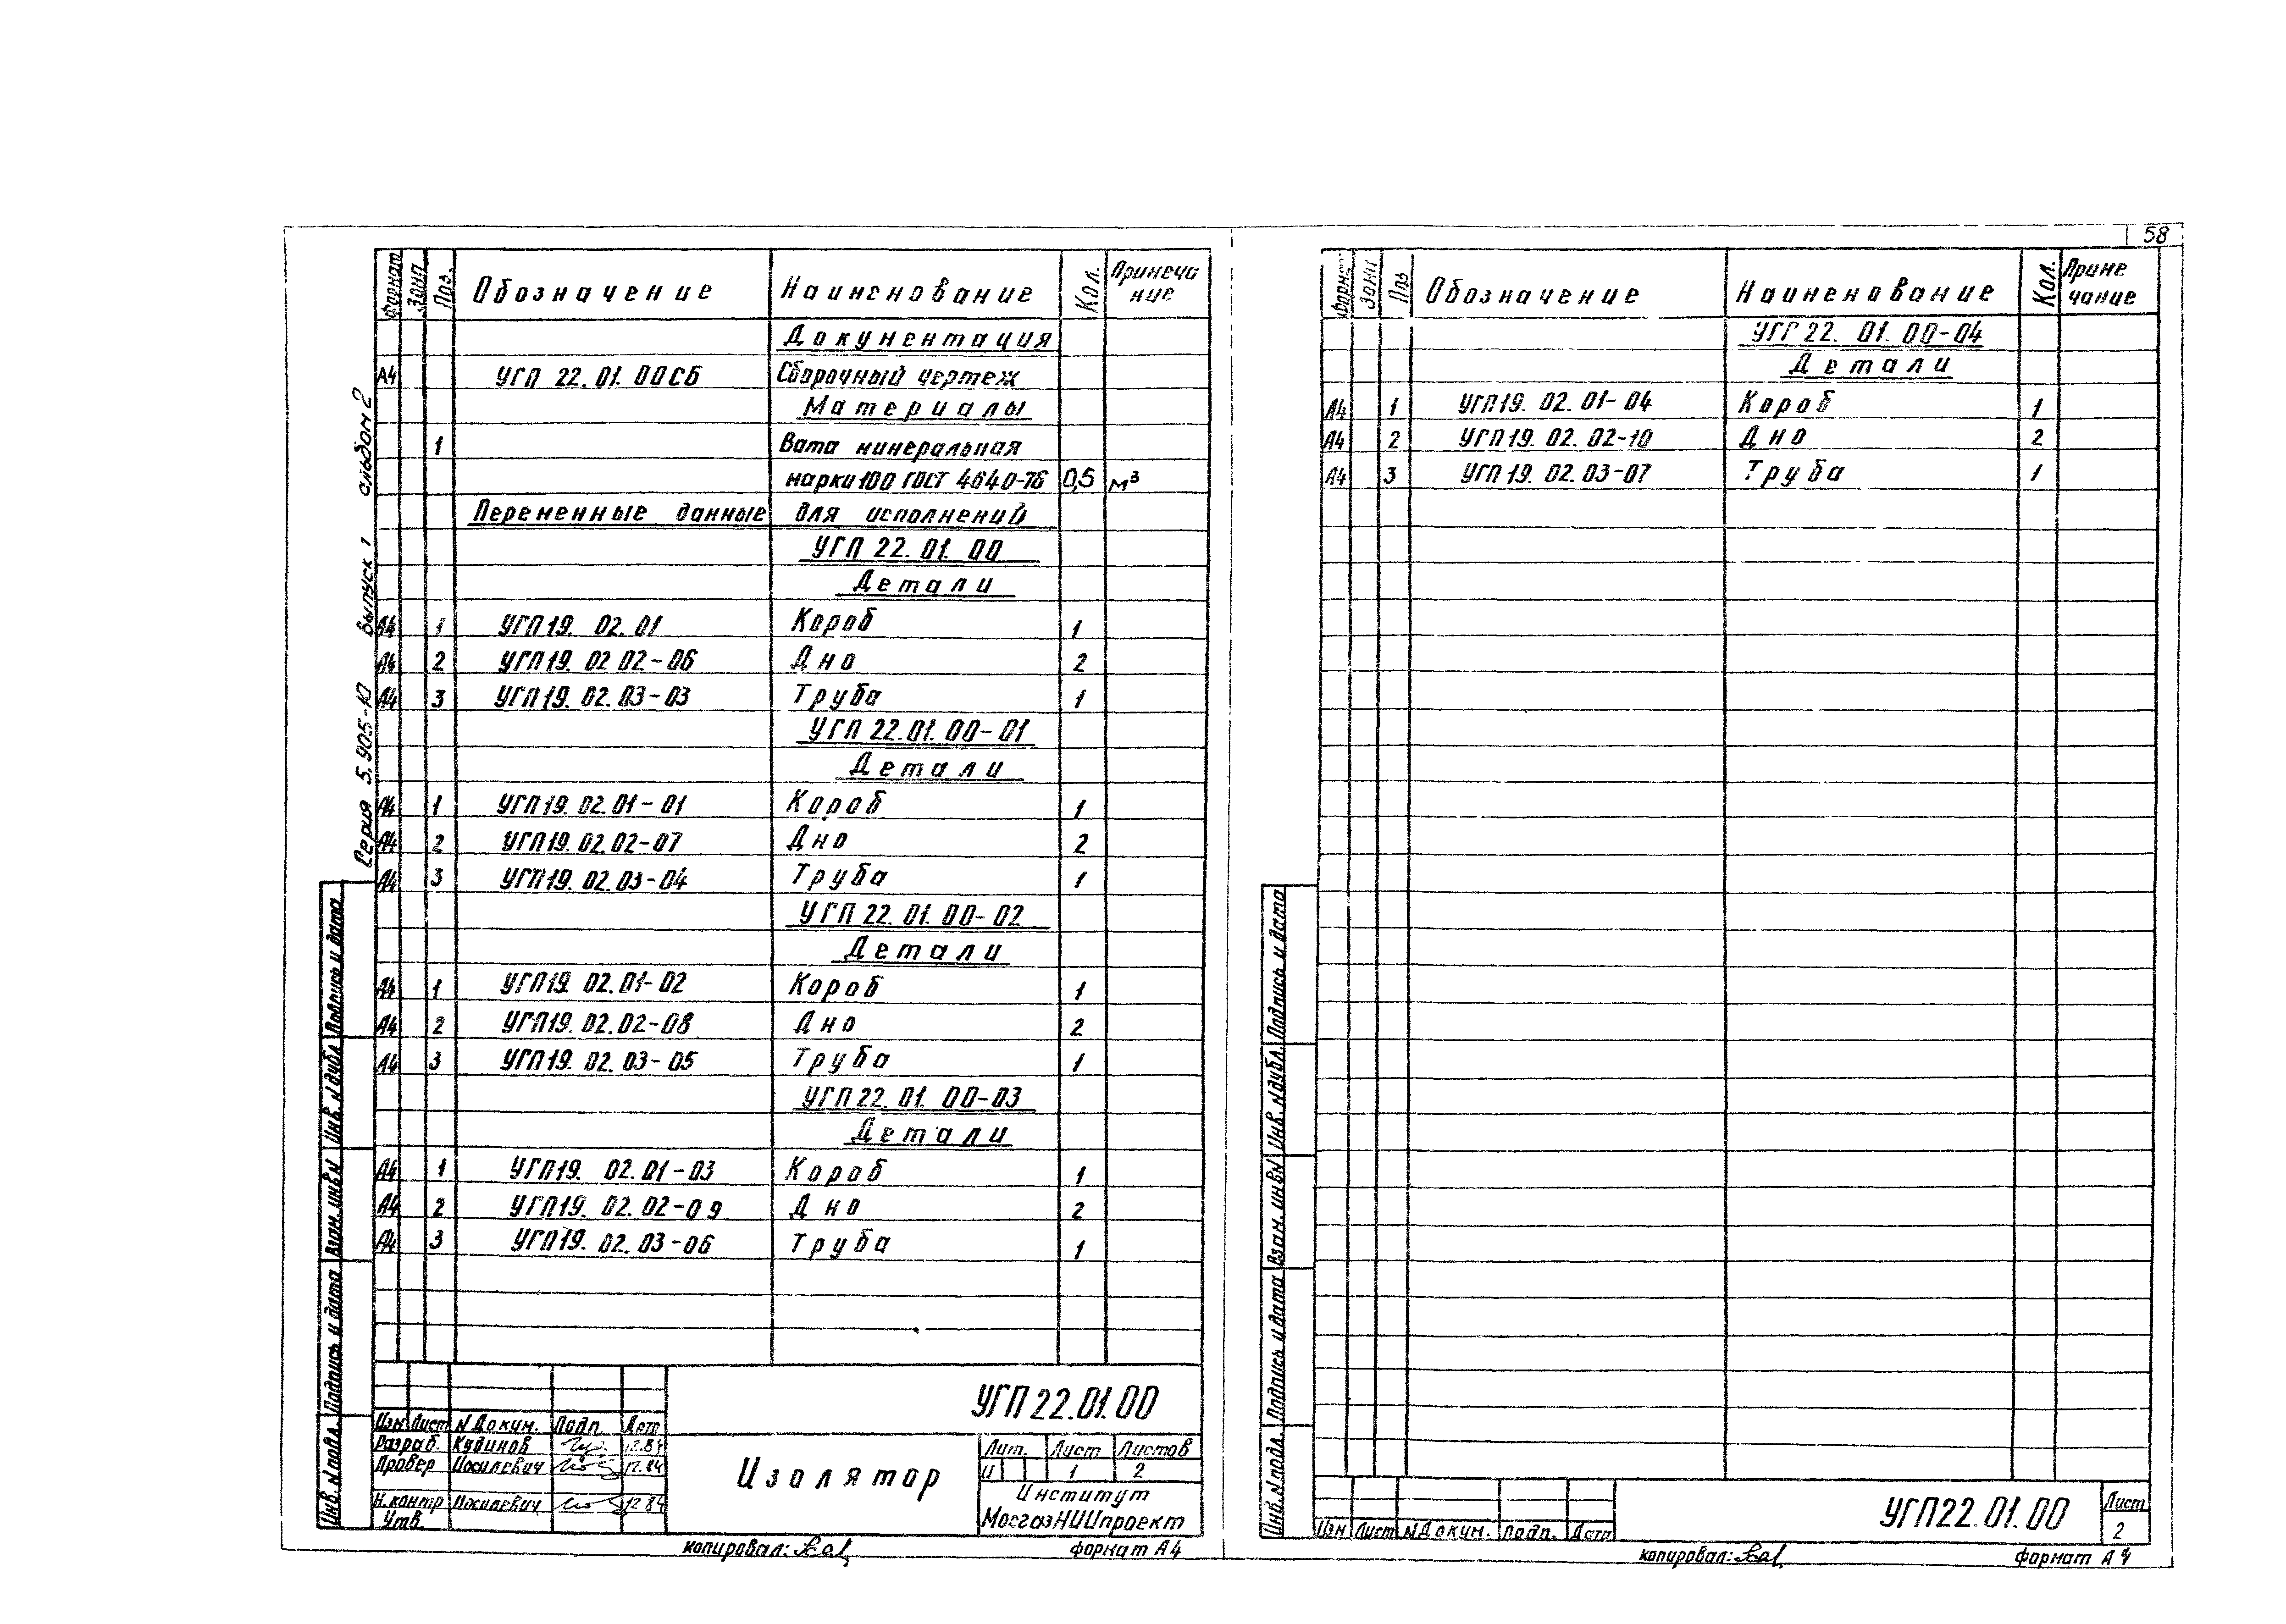 58
Серия 5.905-10 Выпуск 1 альбом 2
Формат Зона Поз. Обозначение Наименование Кол. Примечание
Документация
А4 УГП 22.01.00СБ Сборочный чертеж
Материалы
1 Вата минеральная
марки 100 ГОСТ 4640-76 0,5 м³
Переменные данные для исполнений
УГП 22.01.00
Детали
А4 1 УГП19.02.01 Короб 1
А4 2 УГП19.02 02-06 Дно 2
А4 3 УГП19.02.03-03 Труба 1
УГП 22.01.00-01
Детали
А4 1 УГП19.02.01-01 Короб 1
А4 2 УГП19.02.02-07 Дно 2
А4 3 УГП19.02.03-04 Труба 1
УГП 22.01.00-02
Детали
А4 1 УГП19.02.01-02 Короб 1
А4 2 УГП19.02.02-08 Дно 2
А4 3 УГП19.02.03-05 Труба 1
УГП 22.01.00-03
Детали
А4 1 УГП19.02.01-03 Короб 1
А4 2 УГП19.02.02-09 Дно 2
А4 3 УГП19.02.03-06 Труба 1
Инв. N подл. Подпись и дата Взам. инв N Инв. N дубл Подпись и дата
УГП 22.01.00
Изм Лист N Докум. Подп. Дата
Разраб. Кудинов 12.84
Провер Иосилевич 12.84
Н.контр Иосилевич 12 84
Утв.
Изолятор
Лит. Лист Листов
И 1 2
Институт
МосгазНИИпроект
копировал: формат А4
Формат Зона Поз Обозначение Наименование Кол. Примечание
УГП 22.01.00-04
Детали
А4 1 УГП19.02.01-04 Короб 1
А4 2 УГП19.02.02-10 Дно 2
А4 3 УГП19.02.03-07 Труба 1
Инв. N подл. Подпись и дата Взам. инв N Инв. N дубл. Подпись и дата
Изм Лист N Докум. Подп. Дата
УГП22.01.00
Лист
2
копировал: формат А4